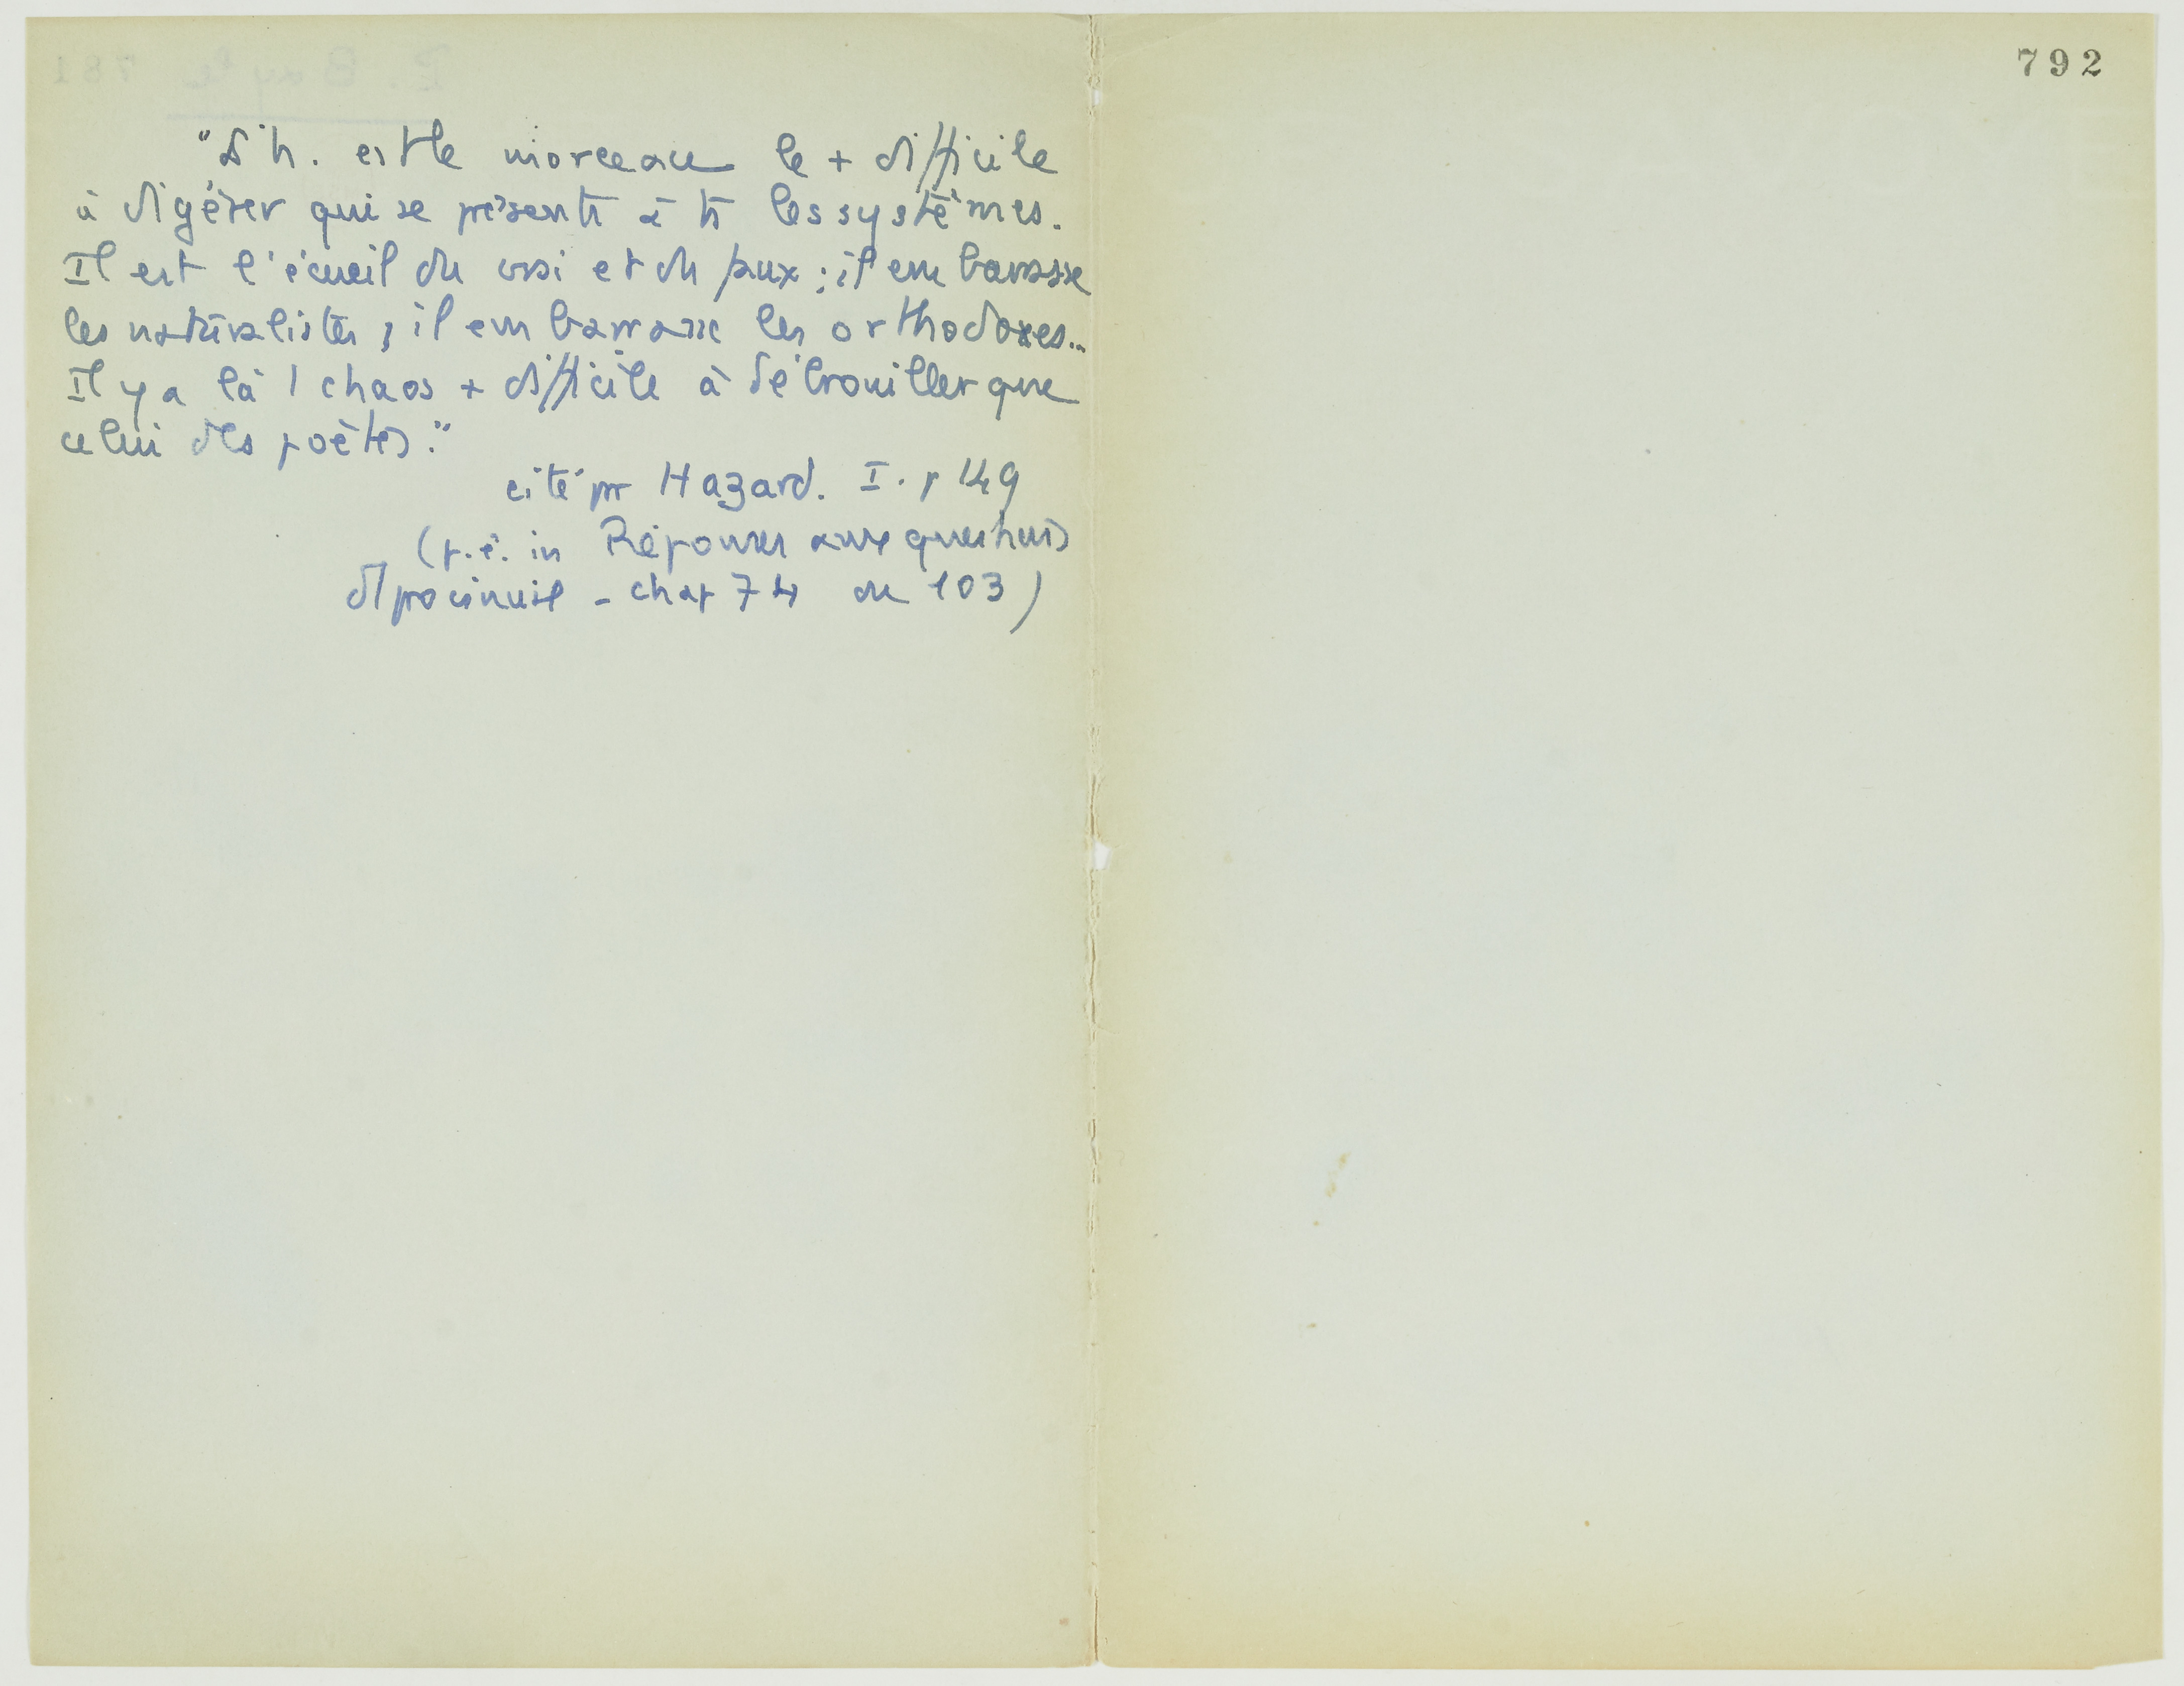 "L'h. est le morceau le + difficile
à digérer qui se présente à ts les systèmes.
Il est l'écueil du vrai et du faux ; il embarasse
les naturalistes, il embarrasse les orthodoxes...
Il y a là 1 chaos + difficile à débrouiller que
celui des poètes."
cité pr Hazard. I. p 149
(p.ê. in Réponses aux questions
d'1 provincial - chap 74 ou 103)
792